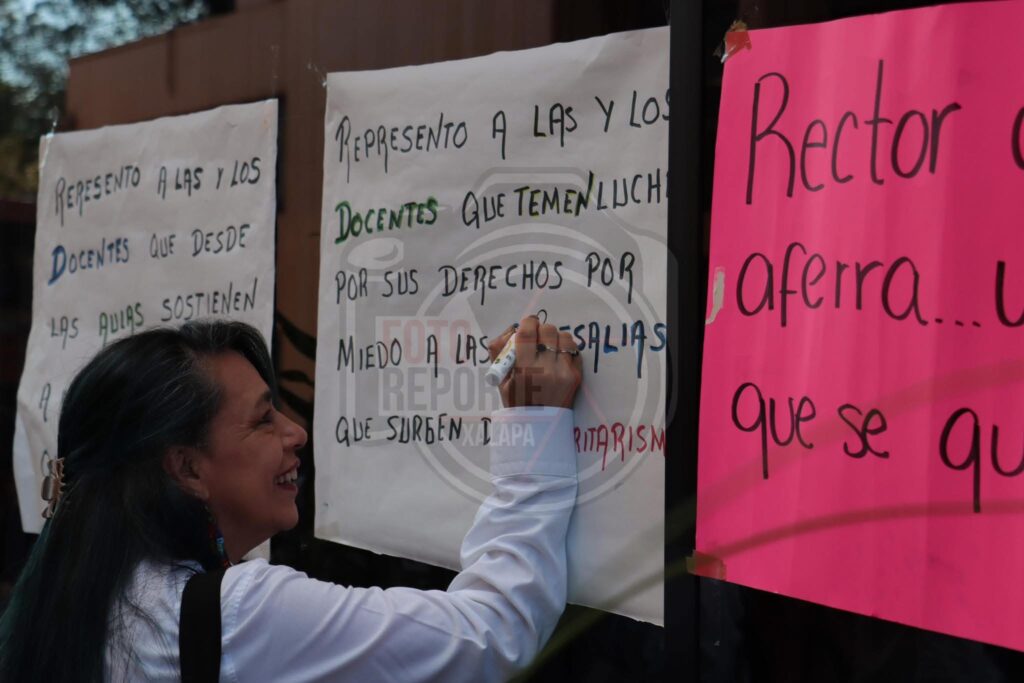 REPRESENTO A LAS Y LOS
DOCENTES QUE DESDE
LAS AULAS SOSTIENEN
A
REPRESENTO A LAS Y LOS
DOCENTES QUE TEMEN LUCH
POR SUS DERECHOS POR
MIEDO A LAS RESALIAS
QUE SURGEN D RITARISM
FOTO
REPORTE
XALAPA
Rector
aferra...u
que se qu